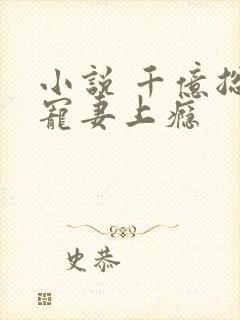 小説 千億
寵妻上癮
史恭